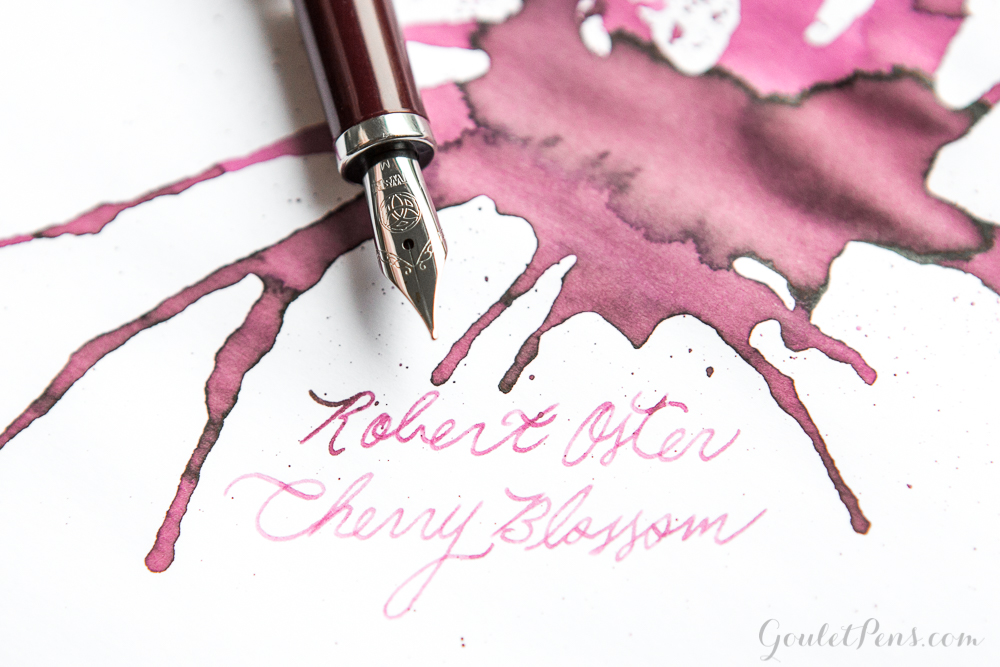 M
Robert Oster
Cherry Blossom
GouletPens.com